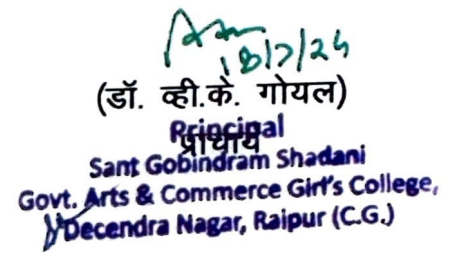 18/7/24
(डॉ. व्ही.के. गोयल)
प्राचार्य
Principal
Sant Gobindram Shadani
Govt. Arts & Commerce Girl's College,
Decendra Nagar, Raipur (C.G.)